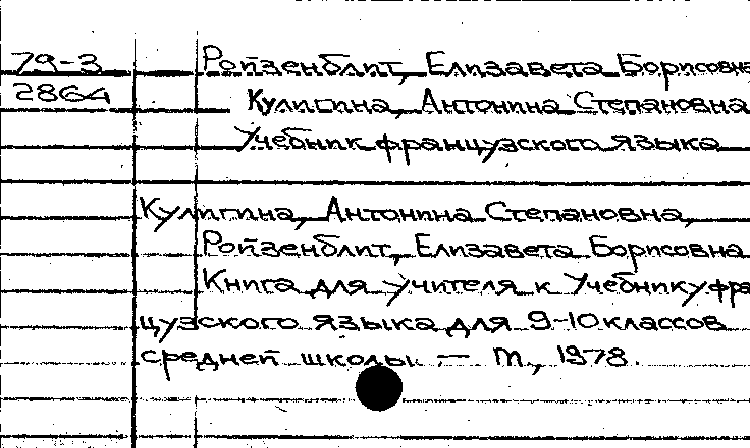 79-3 Ройзенблит, Елизавета Борисовна
2864 Кулигина, Антонина Степановна
Учебник французского языка
Кулигина, Антонина Степановна,
Ройзенблит, Елизавета Борисовна
Книга для учителя к Учебнику фран
цузского языка для 9-10 классов
средней школы — М., 1978.